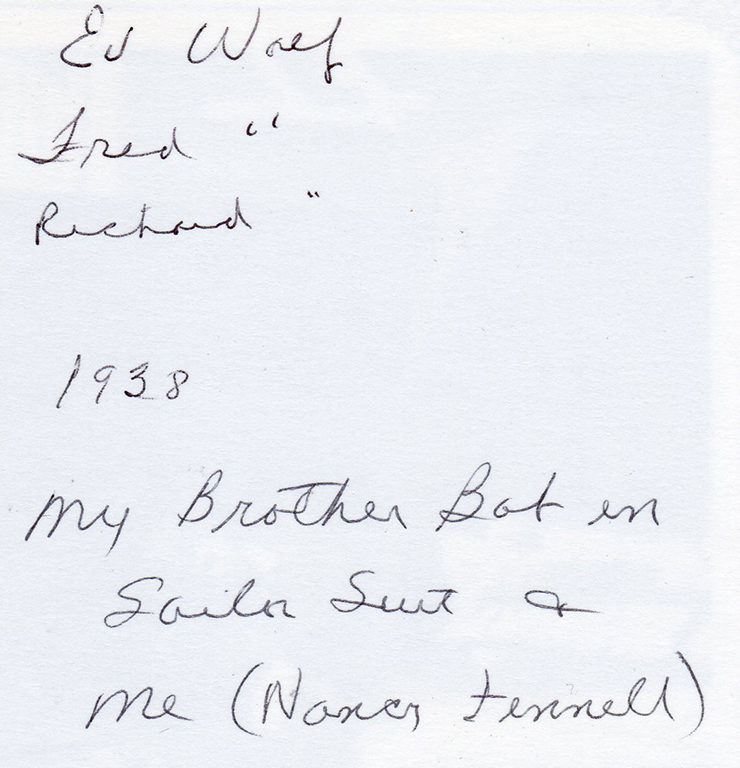 Ed Wolf
Fred "
Richard "
1938
My Brother Bob in
Sailor Suit &
Me (Nancy Fennell)